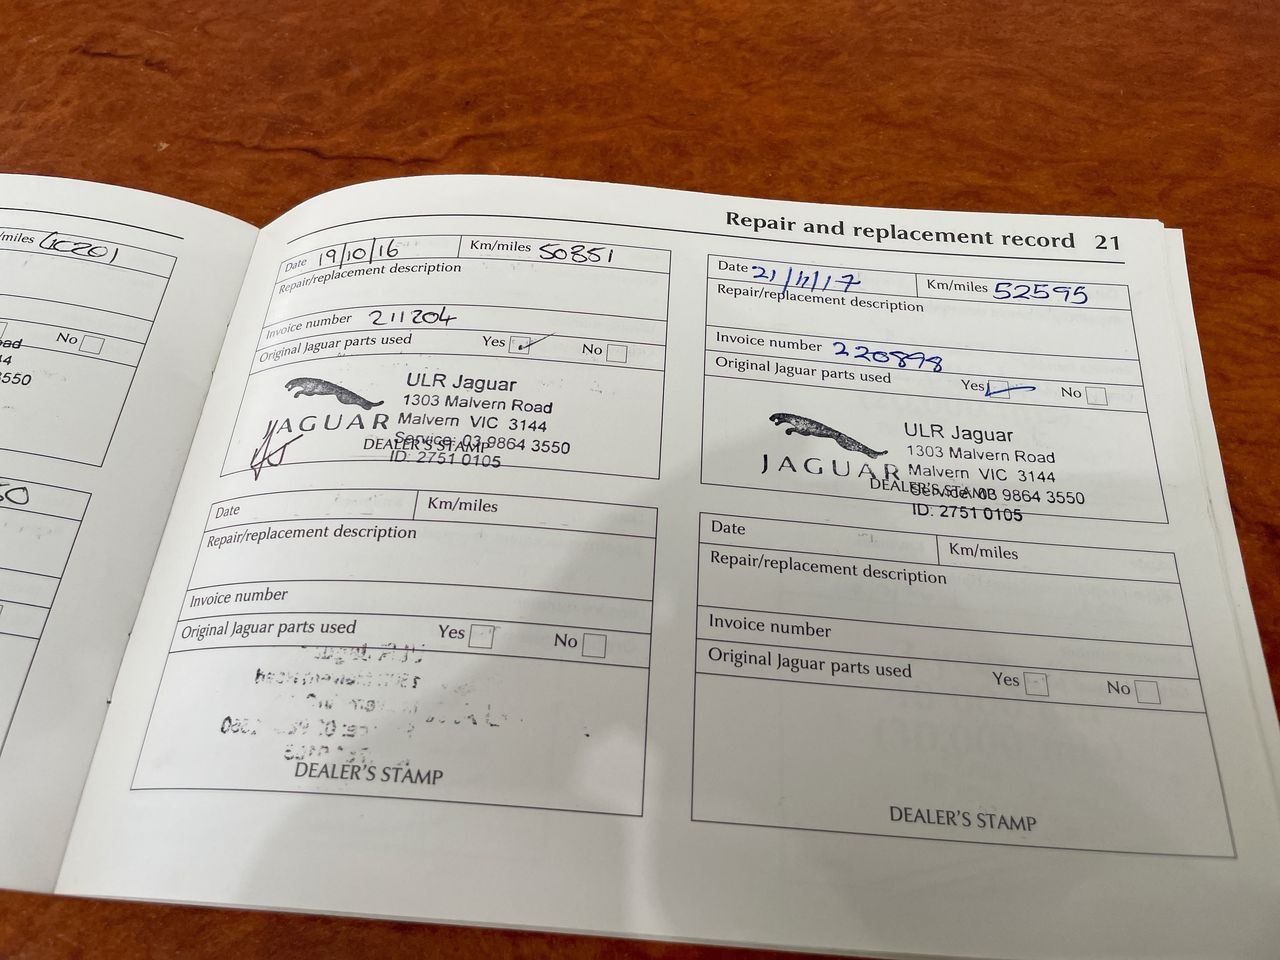 Km/miles
No
3550
50
Repair and replacement record 21
Date 19/10/16 Km/miles 50851
Repair/replacement description
Invoice number 211204
Original Jaguar parts used Yes No
JAGUAR
ULR Jaguar
1303 Malvern Road
Malvern VIC 3144
Service: 03 9864 3550
DEALER'S STAMP
ID: 2751 0105
Date Km/miles
Repair/replacement description
Invoice number
Original Jaguar parts used Yes No
DEALER'S STAMP
Date 21/11/17 Km/miles 52595
Repair/replacement description
Invoice number 220898
Original Jaguar parts used Yes No
JAGUAR
ULR Jaguar
1303 Malvern Road
Malvern VIC 3144
DEALER'S STAMP
Service: 03 9864 3550
ID: 2751 0105
Date Km/miles
Repair/replacement description
Invoice number
Original Jaguar parts used Yes No
DEALER'S STAMP